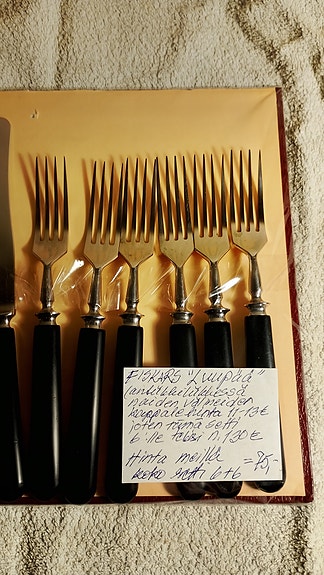 FISKARS "Luupää"
antiikkiliikkeissä
näiden välineiden
kappalehinta 11-13€
joten tämä setti
6:lle tekisi n. 130€
Hinta meillä
koko setti 6+6 = 75,-